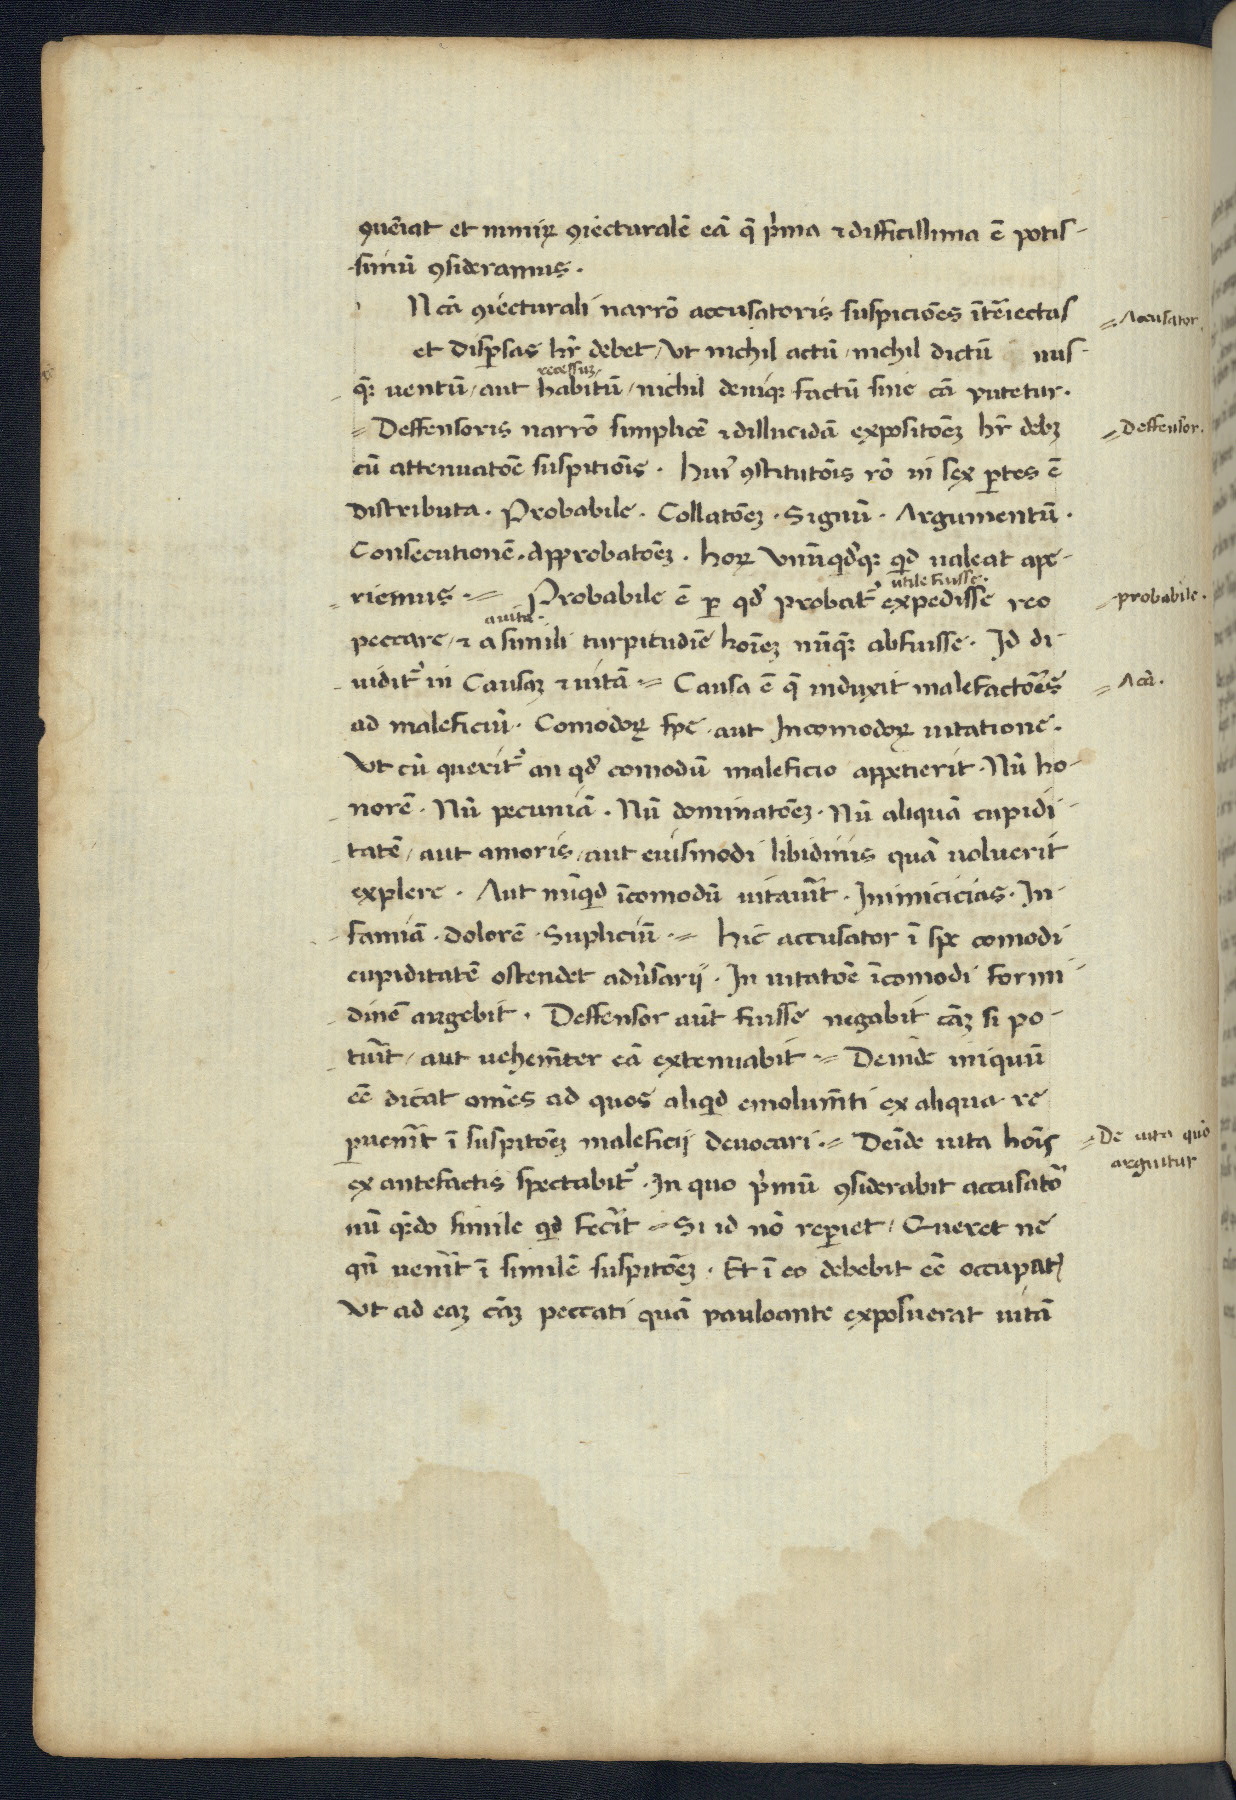 ꝯuēiat et nimiꝝ ꝯiecturalē eā q̄ p̍ma ⁊ difficillima ē potis-
simū ꝯsideramus.
N cā ꝯiecturali narrō accusatoris suspiciōes ītēiectas
Accusator.
et dispsas hr̄ debet / vt nichil actū / nichil dictū nus-
recessuꝫ
qꝫ uentū / aut habitū / nichil deniqꝫ factū sine cā putetur.
Deffensoris narrō simplicē ⁊ dillucidā expositōeꝫ hr̄ debꝫ
Deffensor.
cū attenuatōe suspitiōis. hui' ꝯstitutōis rō in sex ꝑtes ē
distributa. Probabile. Collatōeꝫ. Signū. Argumentū.
Consecutionē. Approbatōeꝫ. hoꝝ vnūqd'qꝫ qd ualeat ape-
utile fuisse.
riemus = Probabile ē ꝑ qd' probat̄ expedisse reo
probabile.
a uita.
peccare / ⁊ a simili turpitudīe hoīeꝫ nūqꝫ abfuisse. Id di-
uidit̄ in Causaꝫ ⁊ uitā = Causa ē q̄ induxit malefactōēs
A cā.
ad maleficiū. Comodoꝝ spe. aut Incomodoꝝ uitatione.
Vt cū querit̄ an qd' comodū maleficio appetierit. Nū ho-
norē. Nū pecuniā. Nū dominatōeꝫ. Nū aliquā cupidi-
tatē / aut amoris / aut eiusmodi libidinis quā uoluerit
explere. Aut nūqd īcomodū uitauīt. Inimicicias. In-
famiā. dolorē. Supliciū = hic accusator ī spe comodi
cupiditatē ostendet adu̍sarij. In uitatōe īcomodi formi-
dinē augebit. Deffensor aūt fuisse negabit cāꝫ si po-
tuīt / aut uehem̄ter eā extenuabit = Deinde iniquū
eē dicat om̄es ad quos aliqd emolum̄ti ex aliqua re
ꝑuen̄it ī suspitōeꝫ maleficij deuocari = Deīde uita hoīs
De uita quō
arguitur
ex antefactis spectabit̄. In quo p̍mū ꝯsiderabit accusatō
nū qn̄do simile qd fec̄it = Si id nō reperiet / Queret ne
qn̄ uen̄it ī similē suspitōeꝫ. Et ī eo debebit eē occupatꝰ
Vt ad eaꝫ cāꝫ peccati quā pauloante exposuerat uitā